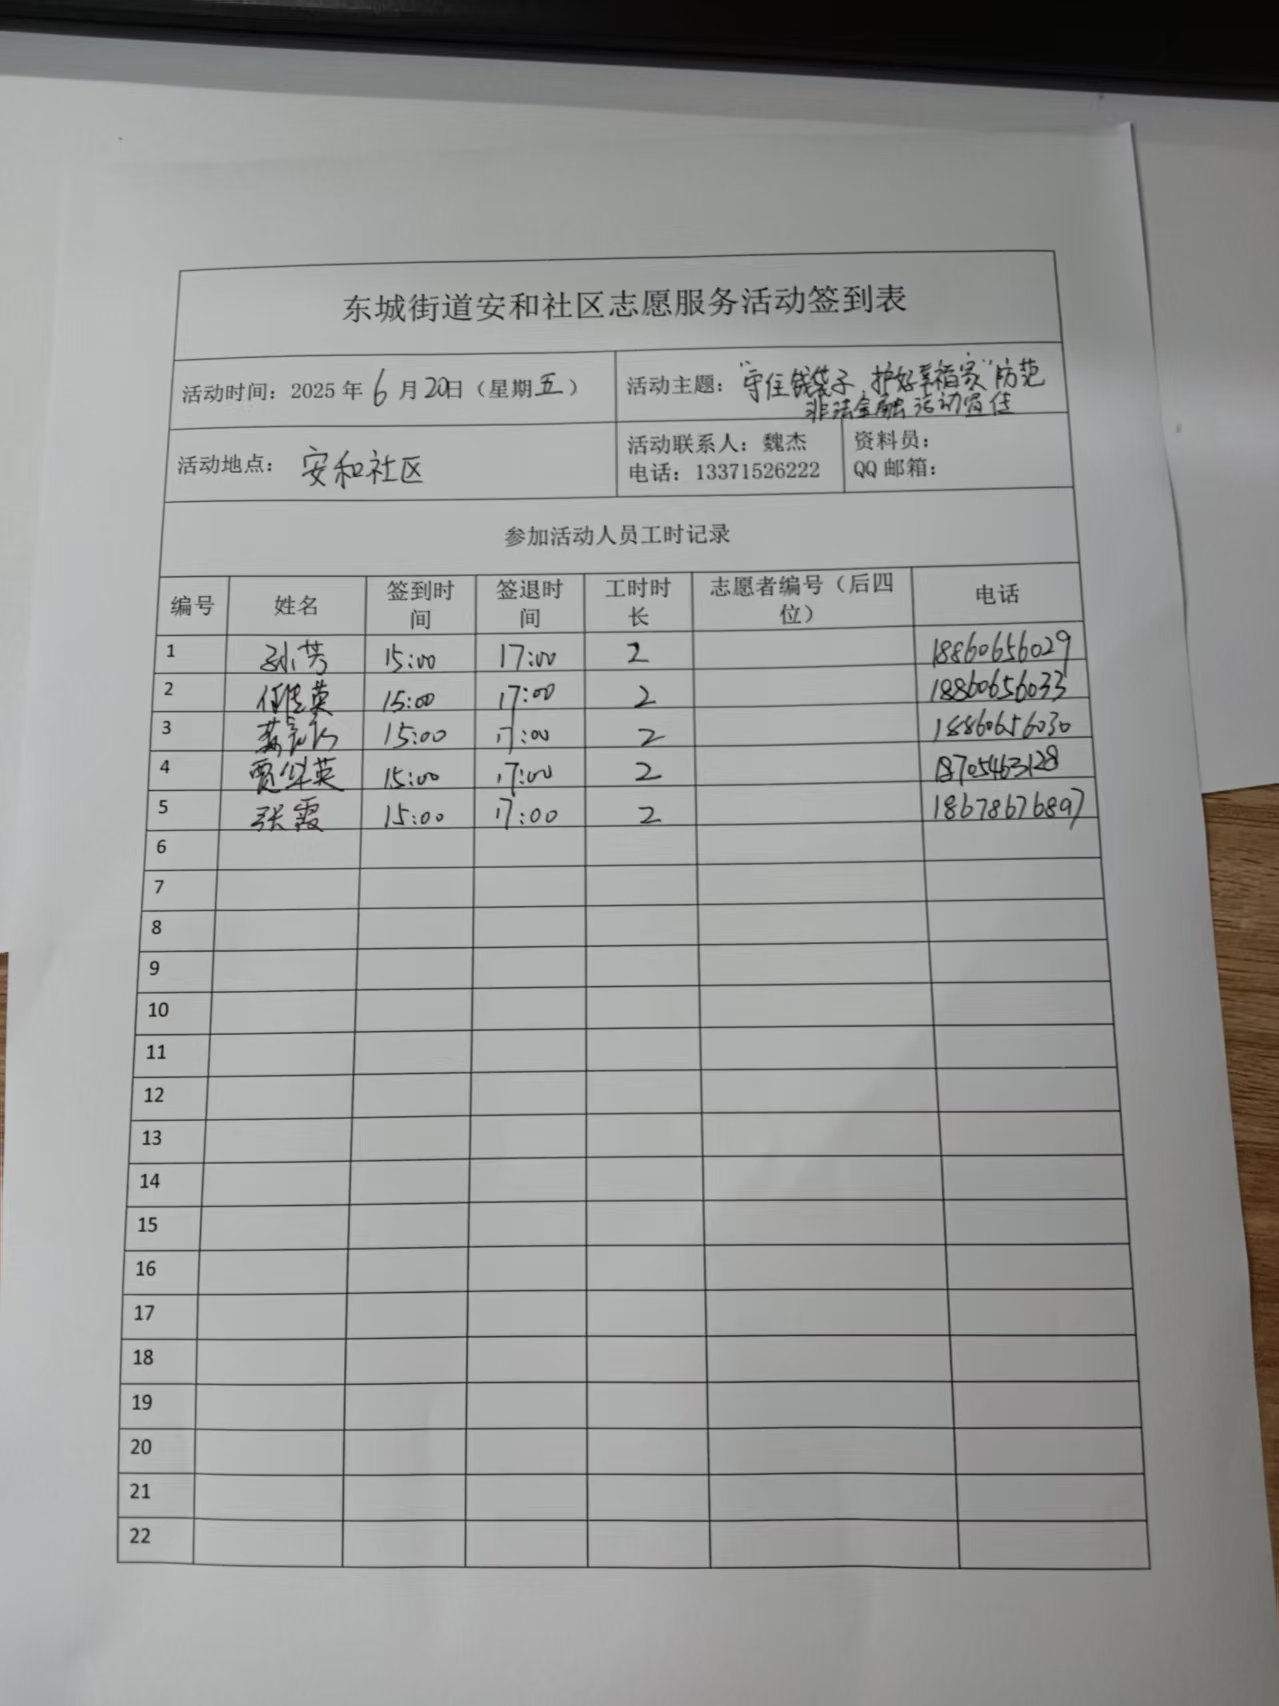 东城街道安和社区志愿服务活动签到表
活动时间：2025年6月20日（星期五） 活动主题："守住钱袋子，护好幸福家"防范
非法金融活动宣传
活动地点： 安和社区 活动联系人：魏杰 资料员：
电话：13371526222 QQ邮箱：
参加活动人员工时记录
编号 姓名 签到时间 签退时间 工时时长 志愿者编号（后四位） 电话
1 孙芳 15:00 17:00 2 18860656029
2 15:00 17:00 2 18860656033
3 15:00 17:00 2 18860656030
4 贾继英 15:00 17:00 2 18705463128
5 张霞 15:00 17:00 2 18678676897
6
7
8
9
10
11
12
13
14
15
16
17
18
19
20
21
22